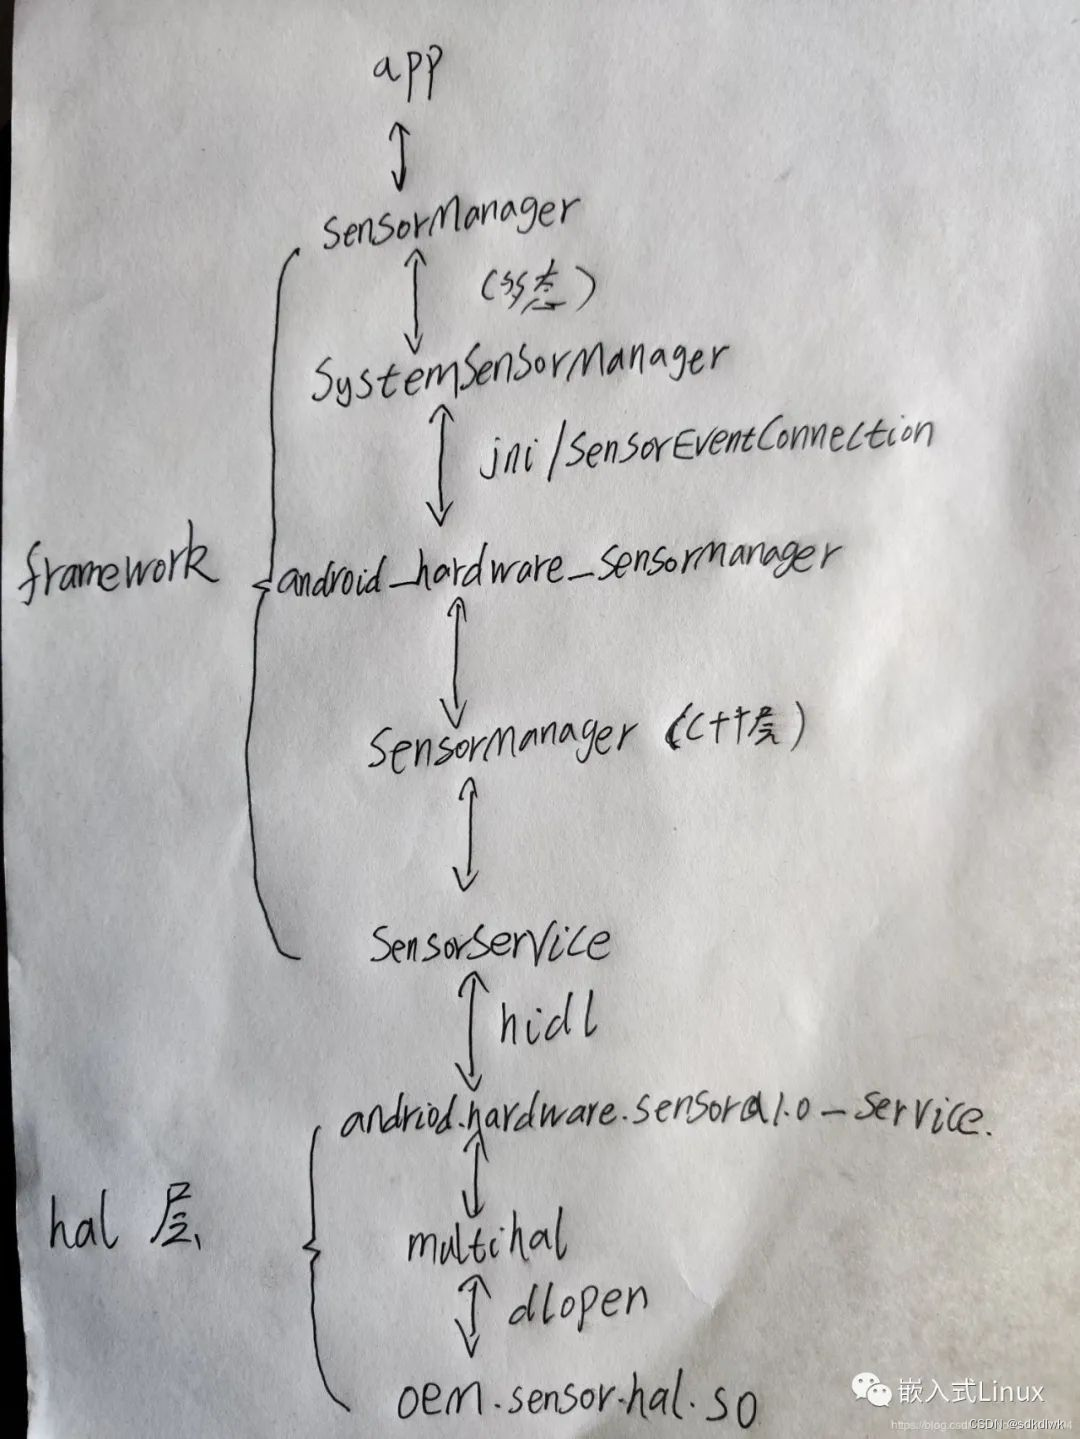 app
SensorManager
(多态)
SystemSensorManager
jni/SensorEventConnection
framework
android_hardware_SensorManager
SensorManager (C++层)
SensorService
hidl
andriod.hardware.sensor@1.0-service.
hal 层
multihal
dlopen
oem.sensor.hal.so
嵌入式Linux
CSDN @sdkdlwk